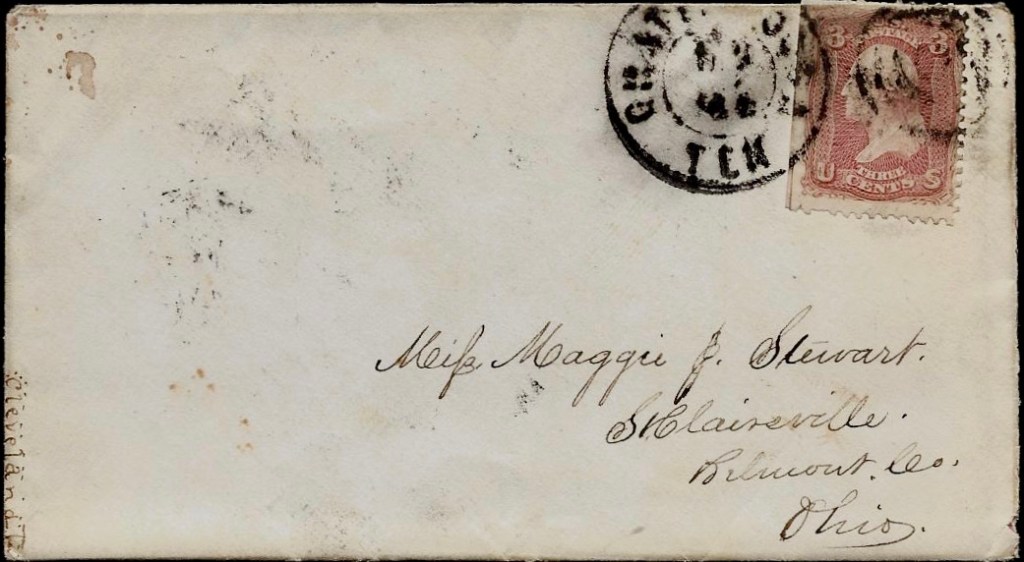 TEN
3 3
U S
THREE
CENTS
Miss Maggie J. Stewart.
St Clairsville.
Belmont. Co.
Ohio.
Cleveland T